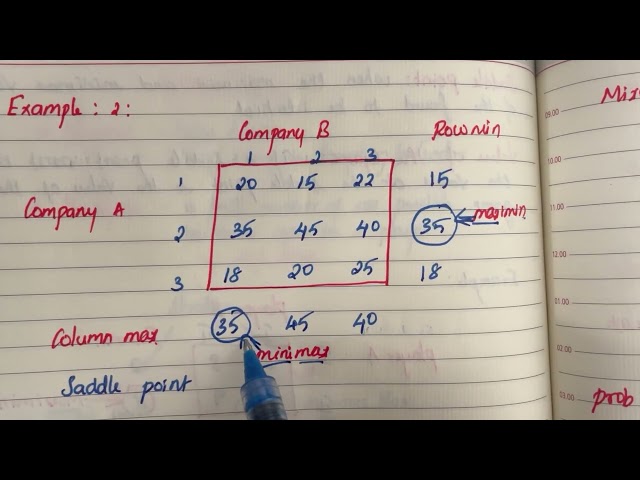 Example : 2 :
Company B Row min
1 2 3
1 20 15 22 15
Company A
2 35 45 40 35 maximin
3 18 20 25 18
Column max 35 45 40
minimax
Saddle point
Mix
09.00
10.00
11.00
12.00
01.00
02.00
03.00
prob